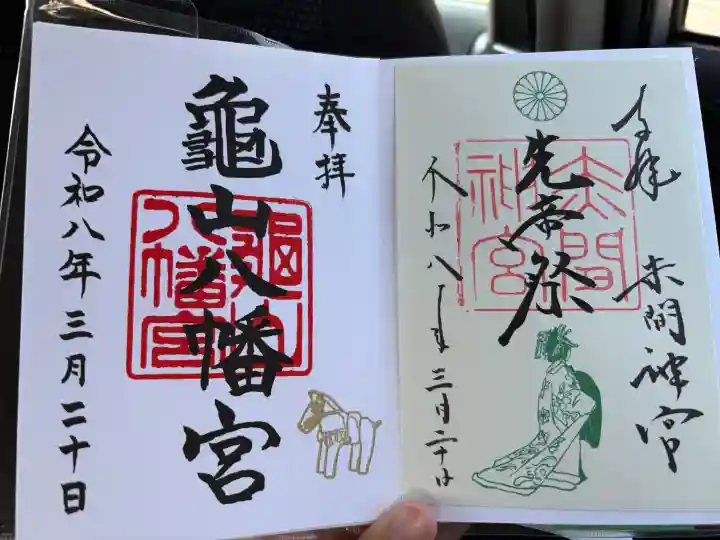 奉拝
赤間神宮
先帝祭
令和八年三月二十日
赤間神宮
奉拝
龜山八幡宮
龜山八幡宮
令和八年三月二十日